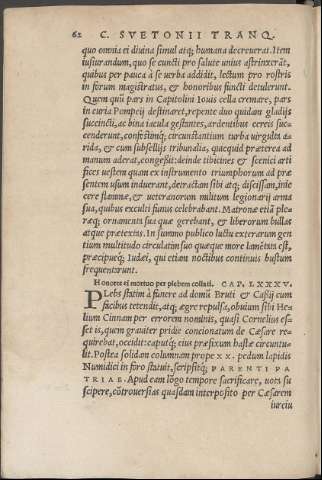 62 C. SVETONII TRANQ.
quo omnia ei diuina simul atq; humana decreuerat. Item
iusiurandum, quo se cuncti pro salute unius astrinxerāt,
quibus per pauca à se uerba addidit, lectum pro rostris
in forum magistratus, & honoribus functi detulerunt.
Quem quū pars in Capitolini Iouis cella cremare, pars
in curia Pompeij destinaret, repente duo quidam gladijs
succincti, ac bina iacula gestantes, ardentibus cereis suc-
cenderunt, confestimq; circunstantium turba uirgulta a-
rida, & cum subsellijs tribunalia, quicquid præterea ad
manum aderat, congeßit: deinde tibicines & scenici arti
fices uestem quam ex instrumento triumphorum ad præ
sentem usum induerant, detractam sibi atq; discissam, inie
cere flammæ, & ueteranorum militum legionarij arma
sua, quibus exculti funus celebrabant. Matronæ etiā ple-
ræq; ornamenta sua quæ gerebant, & liberorum bullas
atque prætextas. In summo publico luctu exterarum gen
tium multitudo circulatim suo quæque more lamētata est,
præcipueq; Iudæi, qui etiam noctibus continuis bustum
frequentarunt.
Honores ei mortuo per plebem collati. CAP. LXXXV.
PLebs statim à funere ad domū Bruti & Caßij cum
facibus tetendit, atq; ægre repulsa, obuiam sibi He-
lium Cinnam per errorem nominis, quasi Cornelius es-
set is, quem grauiter pridie concionatum de Cæsare re-
quirebat, occidit: caputq; eius præfixum hastæ circuntu-
lit. Postea solidam columnam prope xx. pedum lapidis
Numidici in foro statuit, scripsitq; PARENTI PA
TRIAE. Apud eam lōgo tempore sacrificare, uota su
scipere, cōtrouersias quasdam interposito per Cæsarem
iureiu